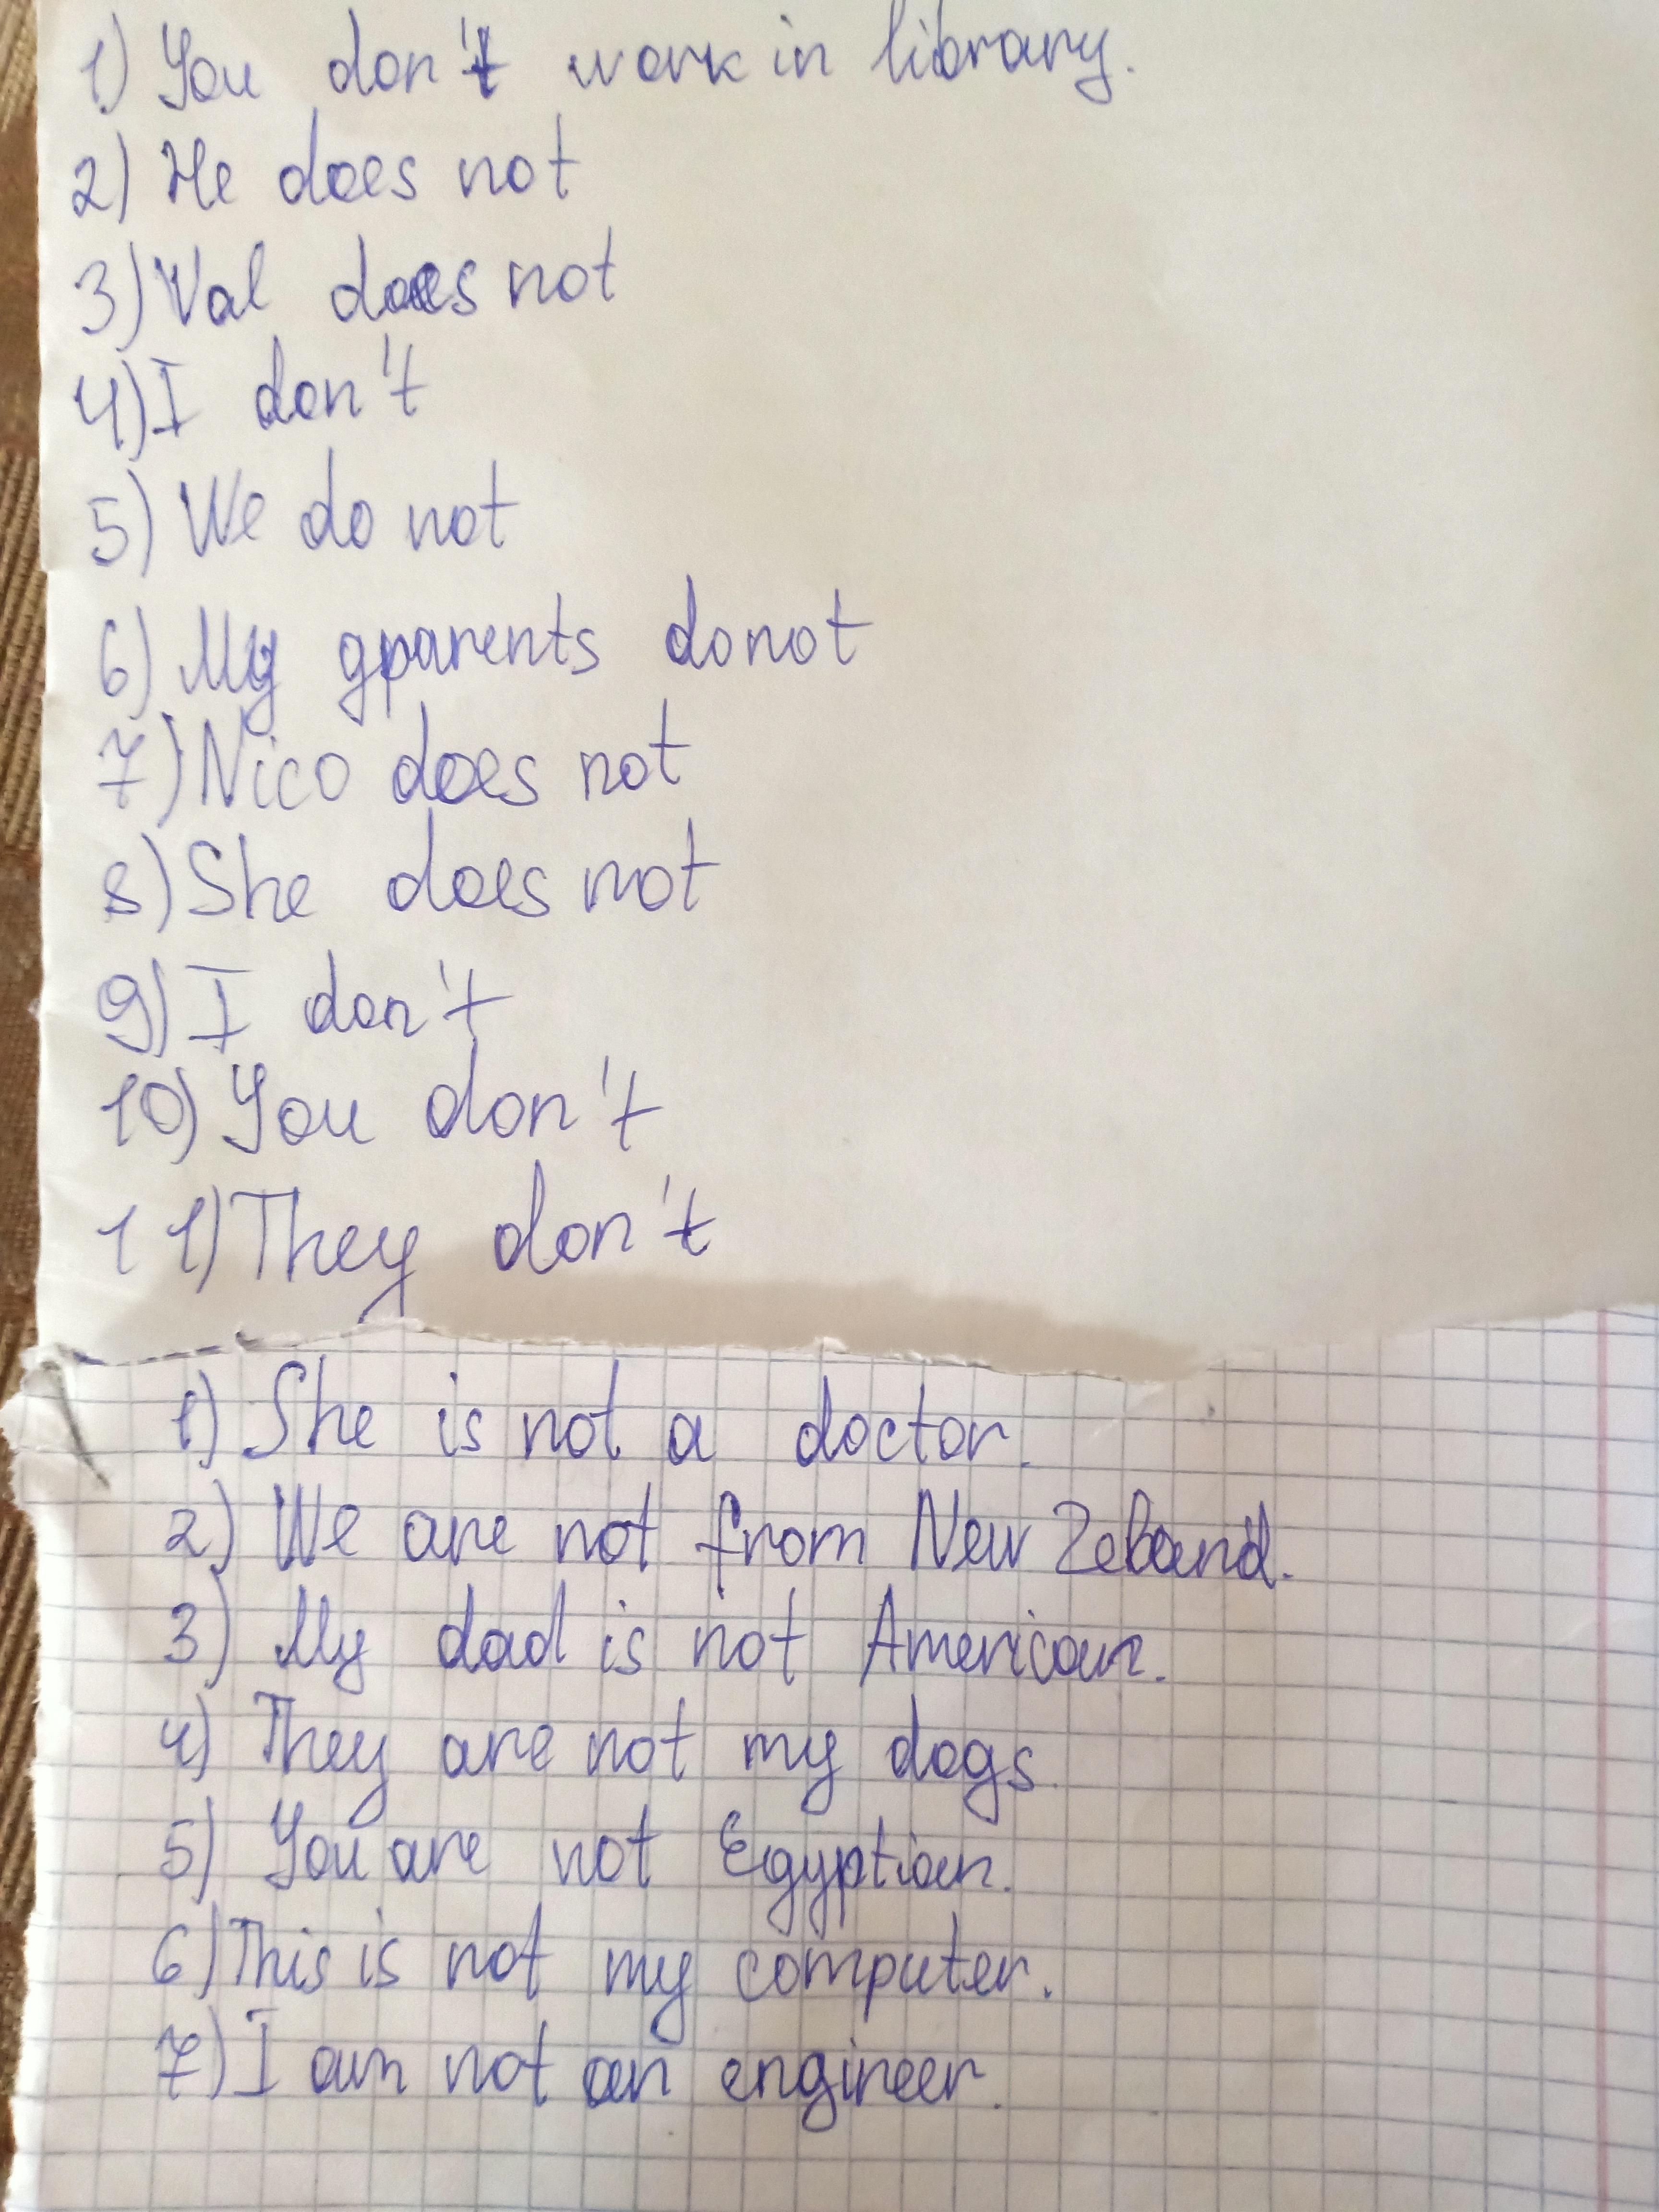 1) You don't work in library.
2) He does not
3) Val does not
4) I don't
5) We do not
6) My gparents do not
7) Nico does not
8) She does not
9) I don't
10) You don't
11) They don't
1) She is not a doctor.
2) We are not from New Zeland.
3) My dad is not American.
4) They are not my dogs.
5) You are not Egyptian.
6) This is not my computer.
7) I am not an engineer.